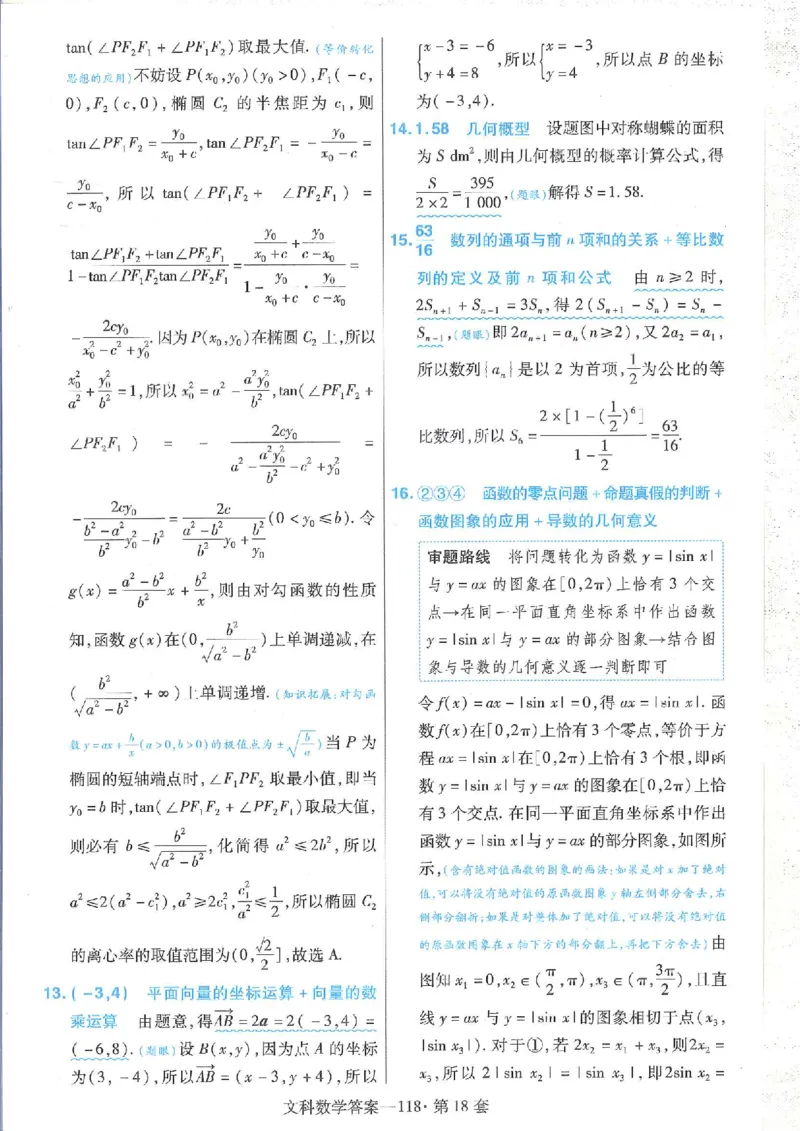 tan(∠PF₂F₁ + ∠PF₁F₂)取最大值.(等价转化
思想的应用)不妨设 P(x₀,y₀)(y₀>0),F₁(-c,
0),F₂(c,0),椭圆 C₂ 的半焦距为 c₁,则
tan∠PF₁F₂ = y₀/(x₀+c),tan∠PF₂F₁ = -y₀/(x₀-c) =
y₀/(c-x₀),所以 tan(∠PF₁F₂ + ∠PF₂F₁) =
(tan∠PF₁F₂+tan∠PF₂F₁)/(1-tan∠PF₁F₂tan∠PF₂F₁) = (y₀/(x₀+c) + y₀/(c-x₀))/(1 - y₀/(x₀+c) · y₀/(c-x₀)) =
-2cy₀/(x₀²-c²+y₀²).因为 P(x₀,y₀)在椭圆 C₂ 上,所以
x₀²/a² + y₀²/b² = 1,所以 x₀² = a² - a²y₀²/b²,tan(∠PF₁F₂ +
∠PF₂F₁) = -2cy₀/(a² - a²y₀²/b² - c² + y₀²) =
-2cy₀/((b²-a²)/b² y₀² - b²) = 2c/((a²-b²)/b² y₀ + b²/y₀)(0<y₀≤b).令
g(x) = (a²-b²)/b² x + b²/x,则由对勾函数的性质
知,函数 g(x)在(0, b²/√(a²-b²))上单调递减,在
(b²/√(a²-b²), +∞)上单调递增.(知识拓展:对勾函
数 y=ax+b/x(a>0,b>0)的极值点为±√(b/a))当 P 为
椭圆的短轴端点时,∠F₁PF₂ 取最小值,即当
y₀=b 时,tan(∠PF₁F₂ + ∠PF₂F₁)取最大值,
则必有 b≤b²/√(a²-b²),化简得 a²≤2b²,所以
a²≤2(a²-c₁²),a²≥2c₁²,c₁²/a²≤1/2,所以椭圆 C₂
的离心率的取值范围为(0,√2/2],故选 A.
13.(-3,4) 平面向量的坐标运算+向量的数
乘运算 由题意,得AB→=2a=2(-3,4)=
(-6,8).(题眼)设 B(x,y),因为点 A 的坐标
为(3,-4),所以AB→=(x-3,y+4),所以
{x-3=-6,y+4=8,所以{x=-3,y=4,所以点 B 的坐标
为(-3,4).
14.1.58 几何概型 设题图中对称蝴蝶的面积
为 S dm²,则由几何概型的概率计算公式,得
S/(2×2)=395/1 000,(题眼)解得 S=1.58.
15.63/16 数列的通项与前 n 项和的关系+等比数
列的定义及前 n 项和公式 由 n≥2 时,
2Sₙ₊₁+Sₙ₋₁=3Sₙ,得 2(Sₙ₊₁-Sₙ)=Sₙ-
Sₙ₋₁,(题眼)即 2aₙ₊₁=aₙ(n≥2),又 2a₂=a₁,
所以数列{aₙ}是以 2 为首项,1/2为公比的等
比数列,所以 S₆=2×[1-(1/2)⁶]/(1-1/2)=63/16.
16.②③④ 函数的零点问题+命题真假的判断+
函数图象的应用+导数的几何意义
审题路线 将问题转化为函数 y=|sin x|
与 y=ax 的图象在[0,2π)上恰有 3 个交
点→在同一平面直角坐标系中作出函数
y=|sin x|与 y=ax 的部分图象→结合图
象与导数的几何意义逐一判断即可
令f(x)=ax-|sin x|=0,得 ax=|sin x|.函
数f(x)在[0,2π)上恰有 3 个零点,等价于方
程 ax=|sin x|在[0,2π)上恰有 3 个根,即函
数 y=|sin x|与 y=ax 的图象在[0,2π)上恰
有 3 个交点.在同一平面直角坐标系中作出
函数 y=|sin x|与 y=ax 的部分图象,如图所
示,(含有绝对值函数的图象的画法:如果是对 x 加了绝对
值,可以将没有绝对值的原函数图象 y 轴左侧部分舍去,右
侧部分翻折;如果是对整体加了绝对值,可以将没有绝对值
的原函数图象在 x 轴下方的部分翻上,再把下方舍去)由
图知 x₁=0,x₂∈(π/2,π),x₃∈(π,3π/2),且直
线 y=ax 与 y=|sin x|的图象相切于点(x₃,
|sin x₃|).对于①,若 2x₂=x₁+x₃,则2x₂=
x₃,所以 2|sin x₂|=|sin x₃|,即2sin x₂=
文科数学答案—118·第 18 套